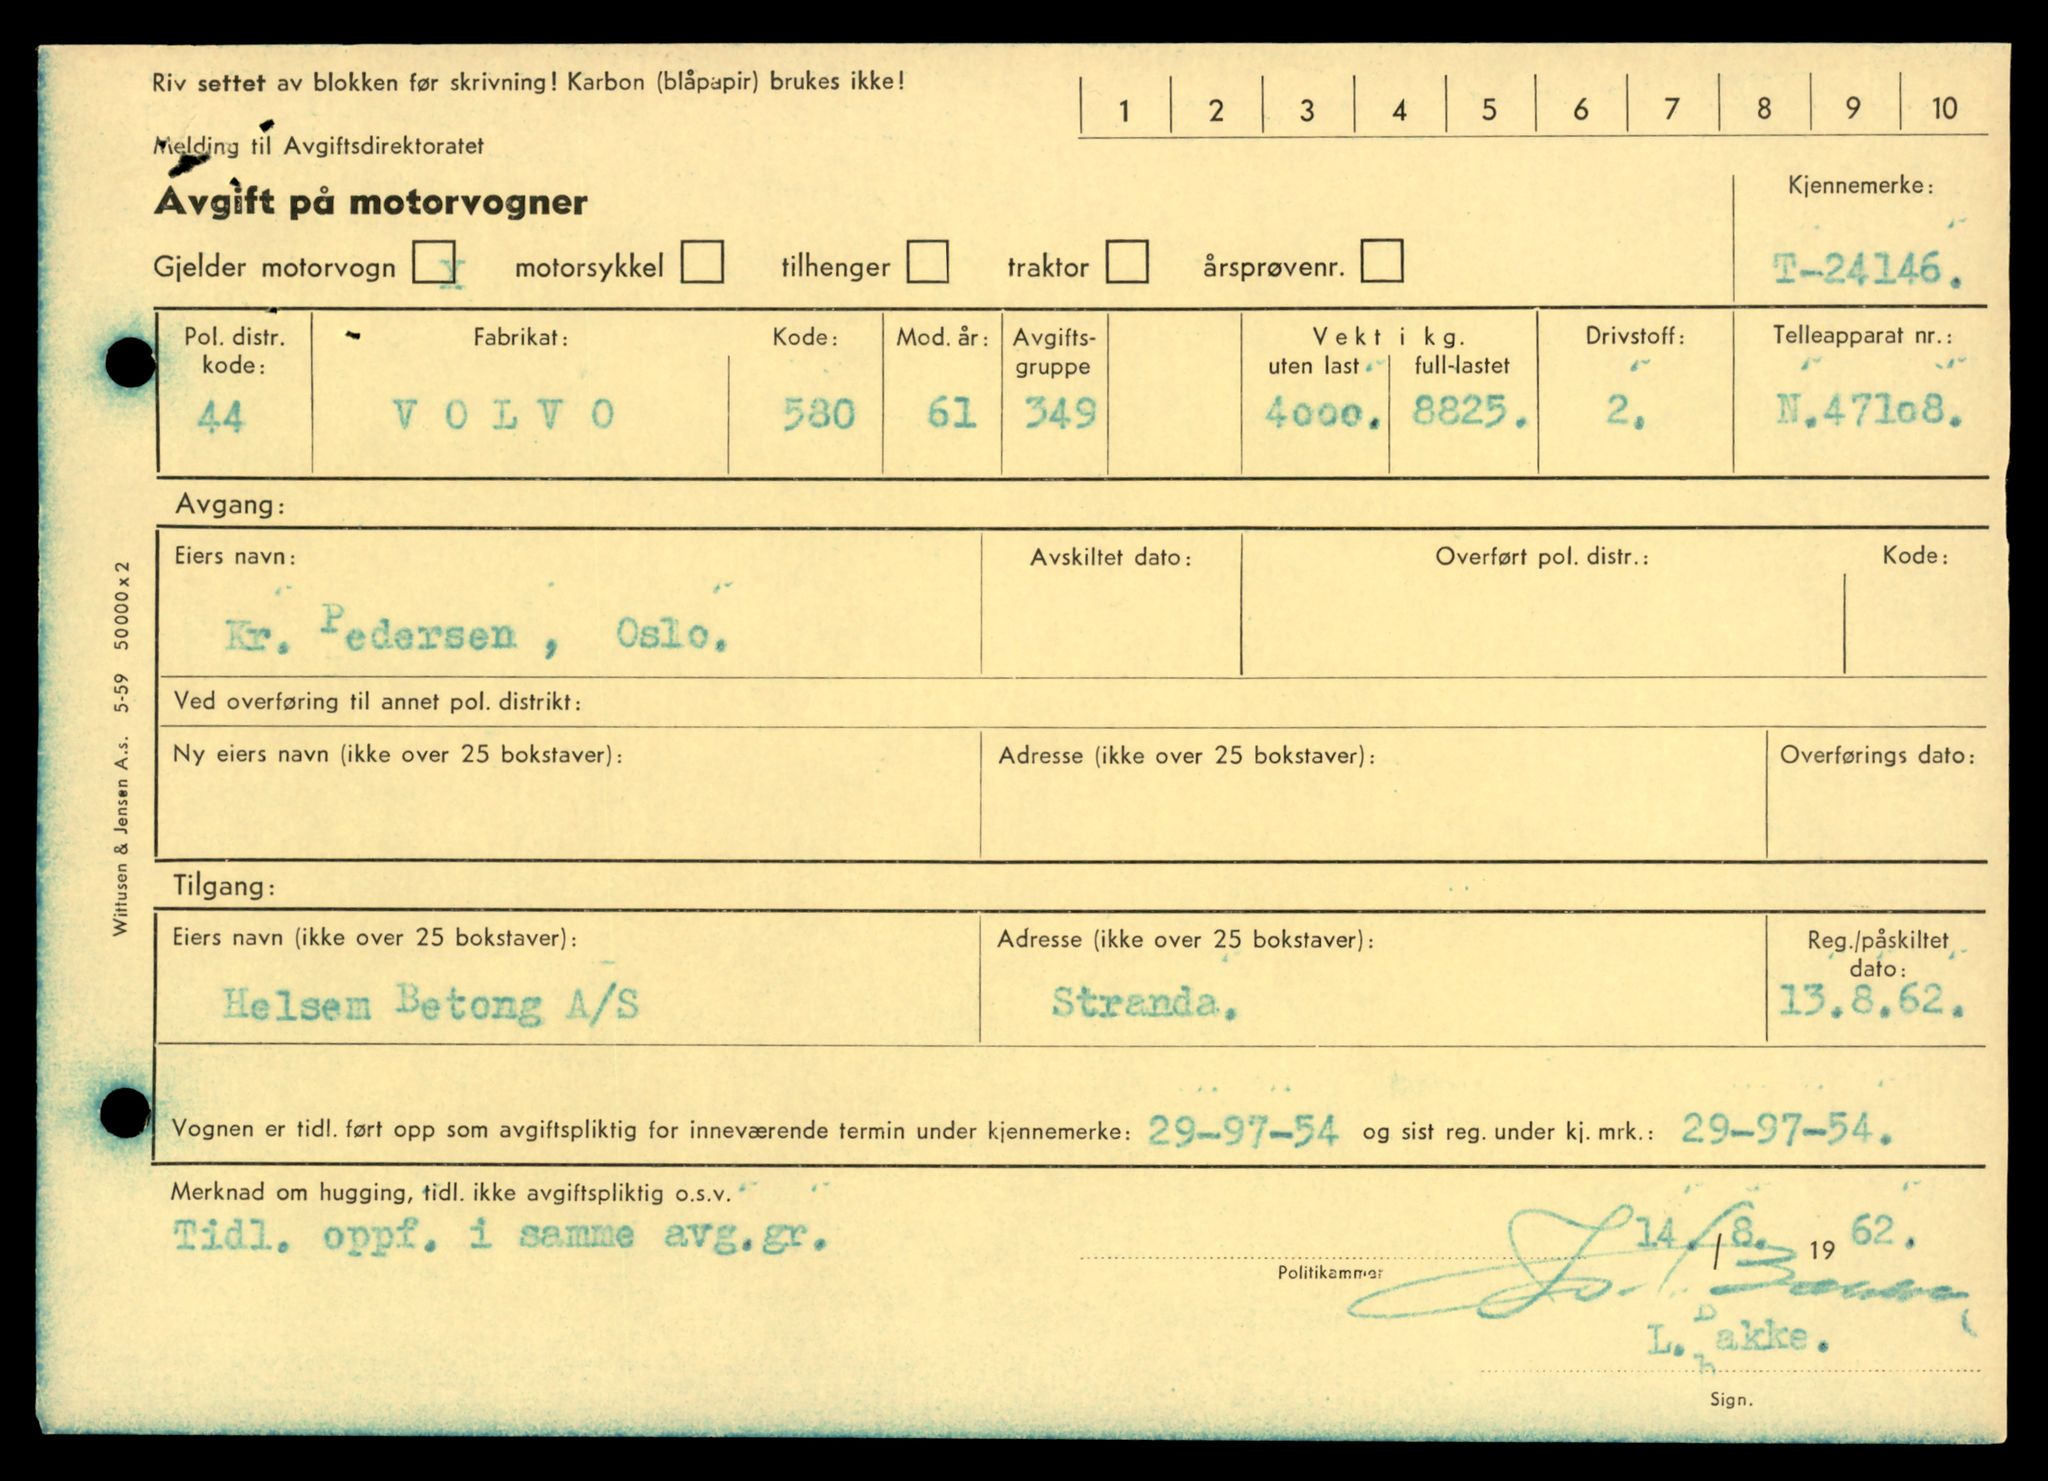 Riv settet av blokken før skrivning! Karbon (blåpapir) brukes ikke!
1 2 3 4 5 6 7 8 9 10
Melding til Avgiftsdirektoratet
Avgift på motorvogner
Kjennemerke:
Gjelder motorvogn x motorsykkel tilhenger traktor årsprøvenr.
T-24146.
Pol. distr. kode: Fabrikat: Kode: Mod. år: Avgifts-gruppe Vekt i kg. uten last full-lastet Drivstoff: Telleapparat nr.:
44 VOLVO 580 61 349 4000. 8825. 2. N.47108.
Avgang:
Eiers navn: Avskiltet dato: Overført pol. distr.: Kode:
Kr. Pedersen, Oslo.
Ved overføring til annet pol. distrikt:
Ny eiers navn (ikke over 25 bokstaver): Adresse (ikke over 25 bokstaver): Overførings dato:
Tilgang:
Eiers navn (ikke over 25 bokstaver): Adresse (ikke over 25 bokstaver): Reg./påskiltet dato:
Helsem Betong A/S Stranda. 13.8.62.
Vognen er tidl. ført opp som avgiftspliktig for inneværende termin under kjennemerke: 29-97-54 og sist reg. under kj. mrk.: 29-97-54.
Merknad om hugging, tidl. ikke avgiftspliktig o.s.v.
Tidl. oppf. i samme avg.gr.
14./8. 1962.
Politikammer
L. Bakke.
Sign.
Wittusen & Jensen A.s. 5-59 50000x2